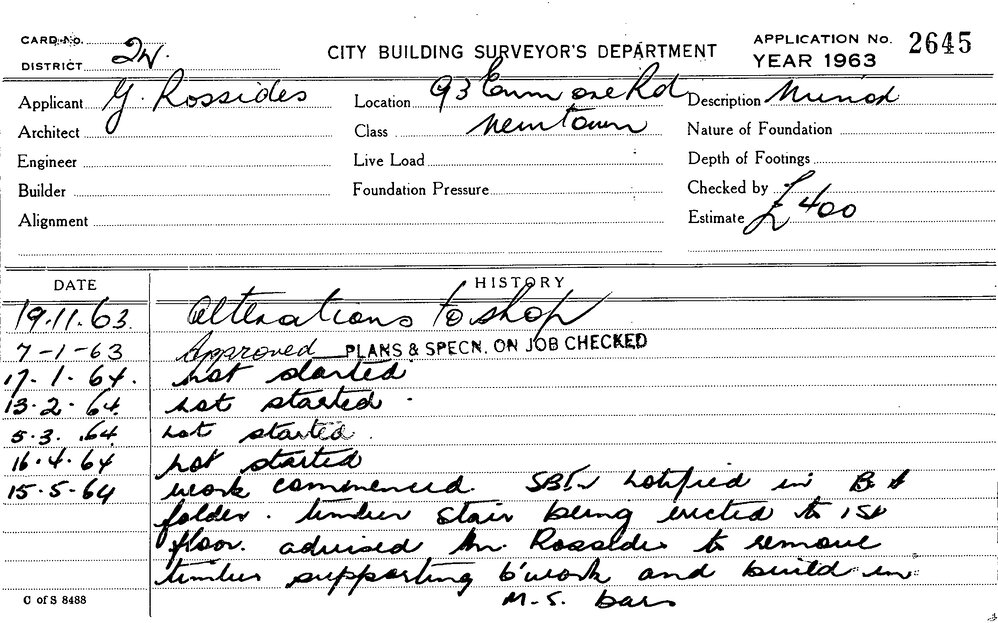 CARD No.
DISTRICT 2W.
CITY BUILDING SURVEYOR'S DEPARTMENT
APPLICATION No. 2645
YEAR 1963
Applicant G. Rossides
Location 93 Enmore Rd
Description Minor
Architect
Class Newtown
Nature of Foundation
Engineer
Live Load
Depth of Footings
Builder
Foundation Pressure
Checked by
Alignment
Estimate £400
DATE
HISTORY
19.11.63 Alterations to shop
7-1-63 Approved PLANS & SPECN. ON JOB CHECKED
17.1.64. not started
13.2.64. not started.
5.3.64 not started.
16.4.64 not started
15.5.64 work commenced. notified in B &
folder. timber stair being erected to 1st
floor. advised Mr. Rossides to remove
timber supporting b'work and build in
M.S. bars
C of S 8488